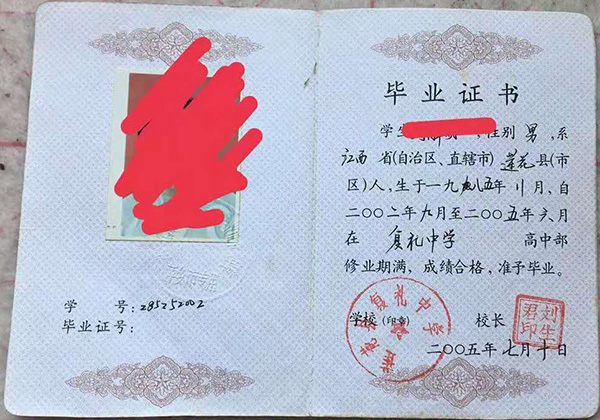 学 号:285252002
毕业证号:
毕业证书
学生 ,性别 男,系
江西 省(自治区、直辖市)莲花县(市
区)人,生于一九八五年 月,自
二〇〇二年九月至二〇〇五年六月
在 复礼中学 高中部
修业期满,成绩合格,准予毕业。
学校(印章) 校长
复礼中学
刘生
君印
二〇〇五年七月十日